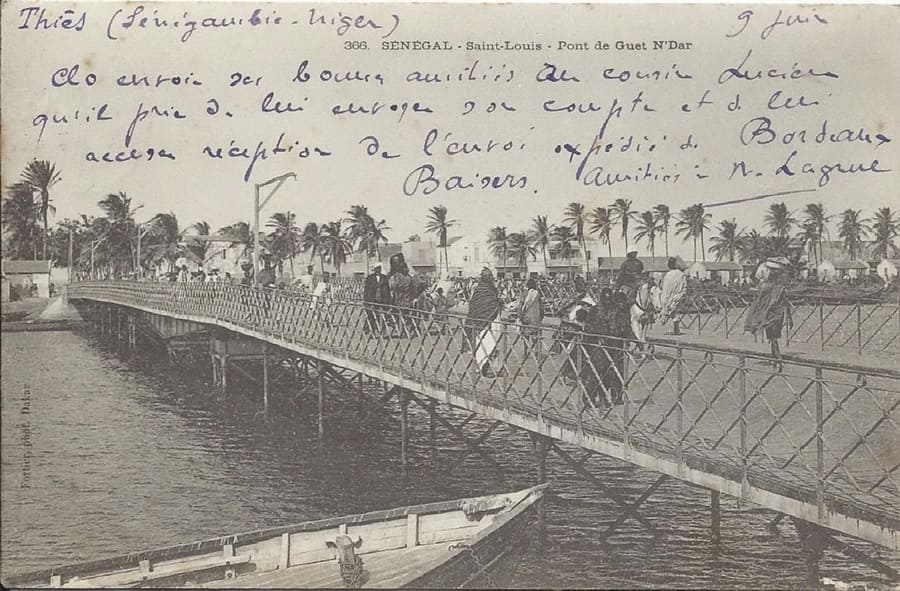 Thiès (Sénégambie-Niger)
9 juin
366. SÉNÉGAL - Saint-Louis - Pont de Guet N'Dar
envoie ses bonnes amitiés au cousin Lucien
qu'il prie de lui envoyer son compte et de lui
accuser réception de l'envoi expédié de Bordeaux
Baisers. Amitiés à
Fortier, phot. Dakar